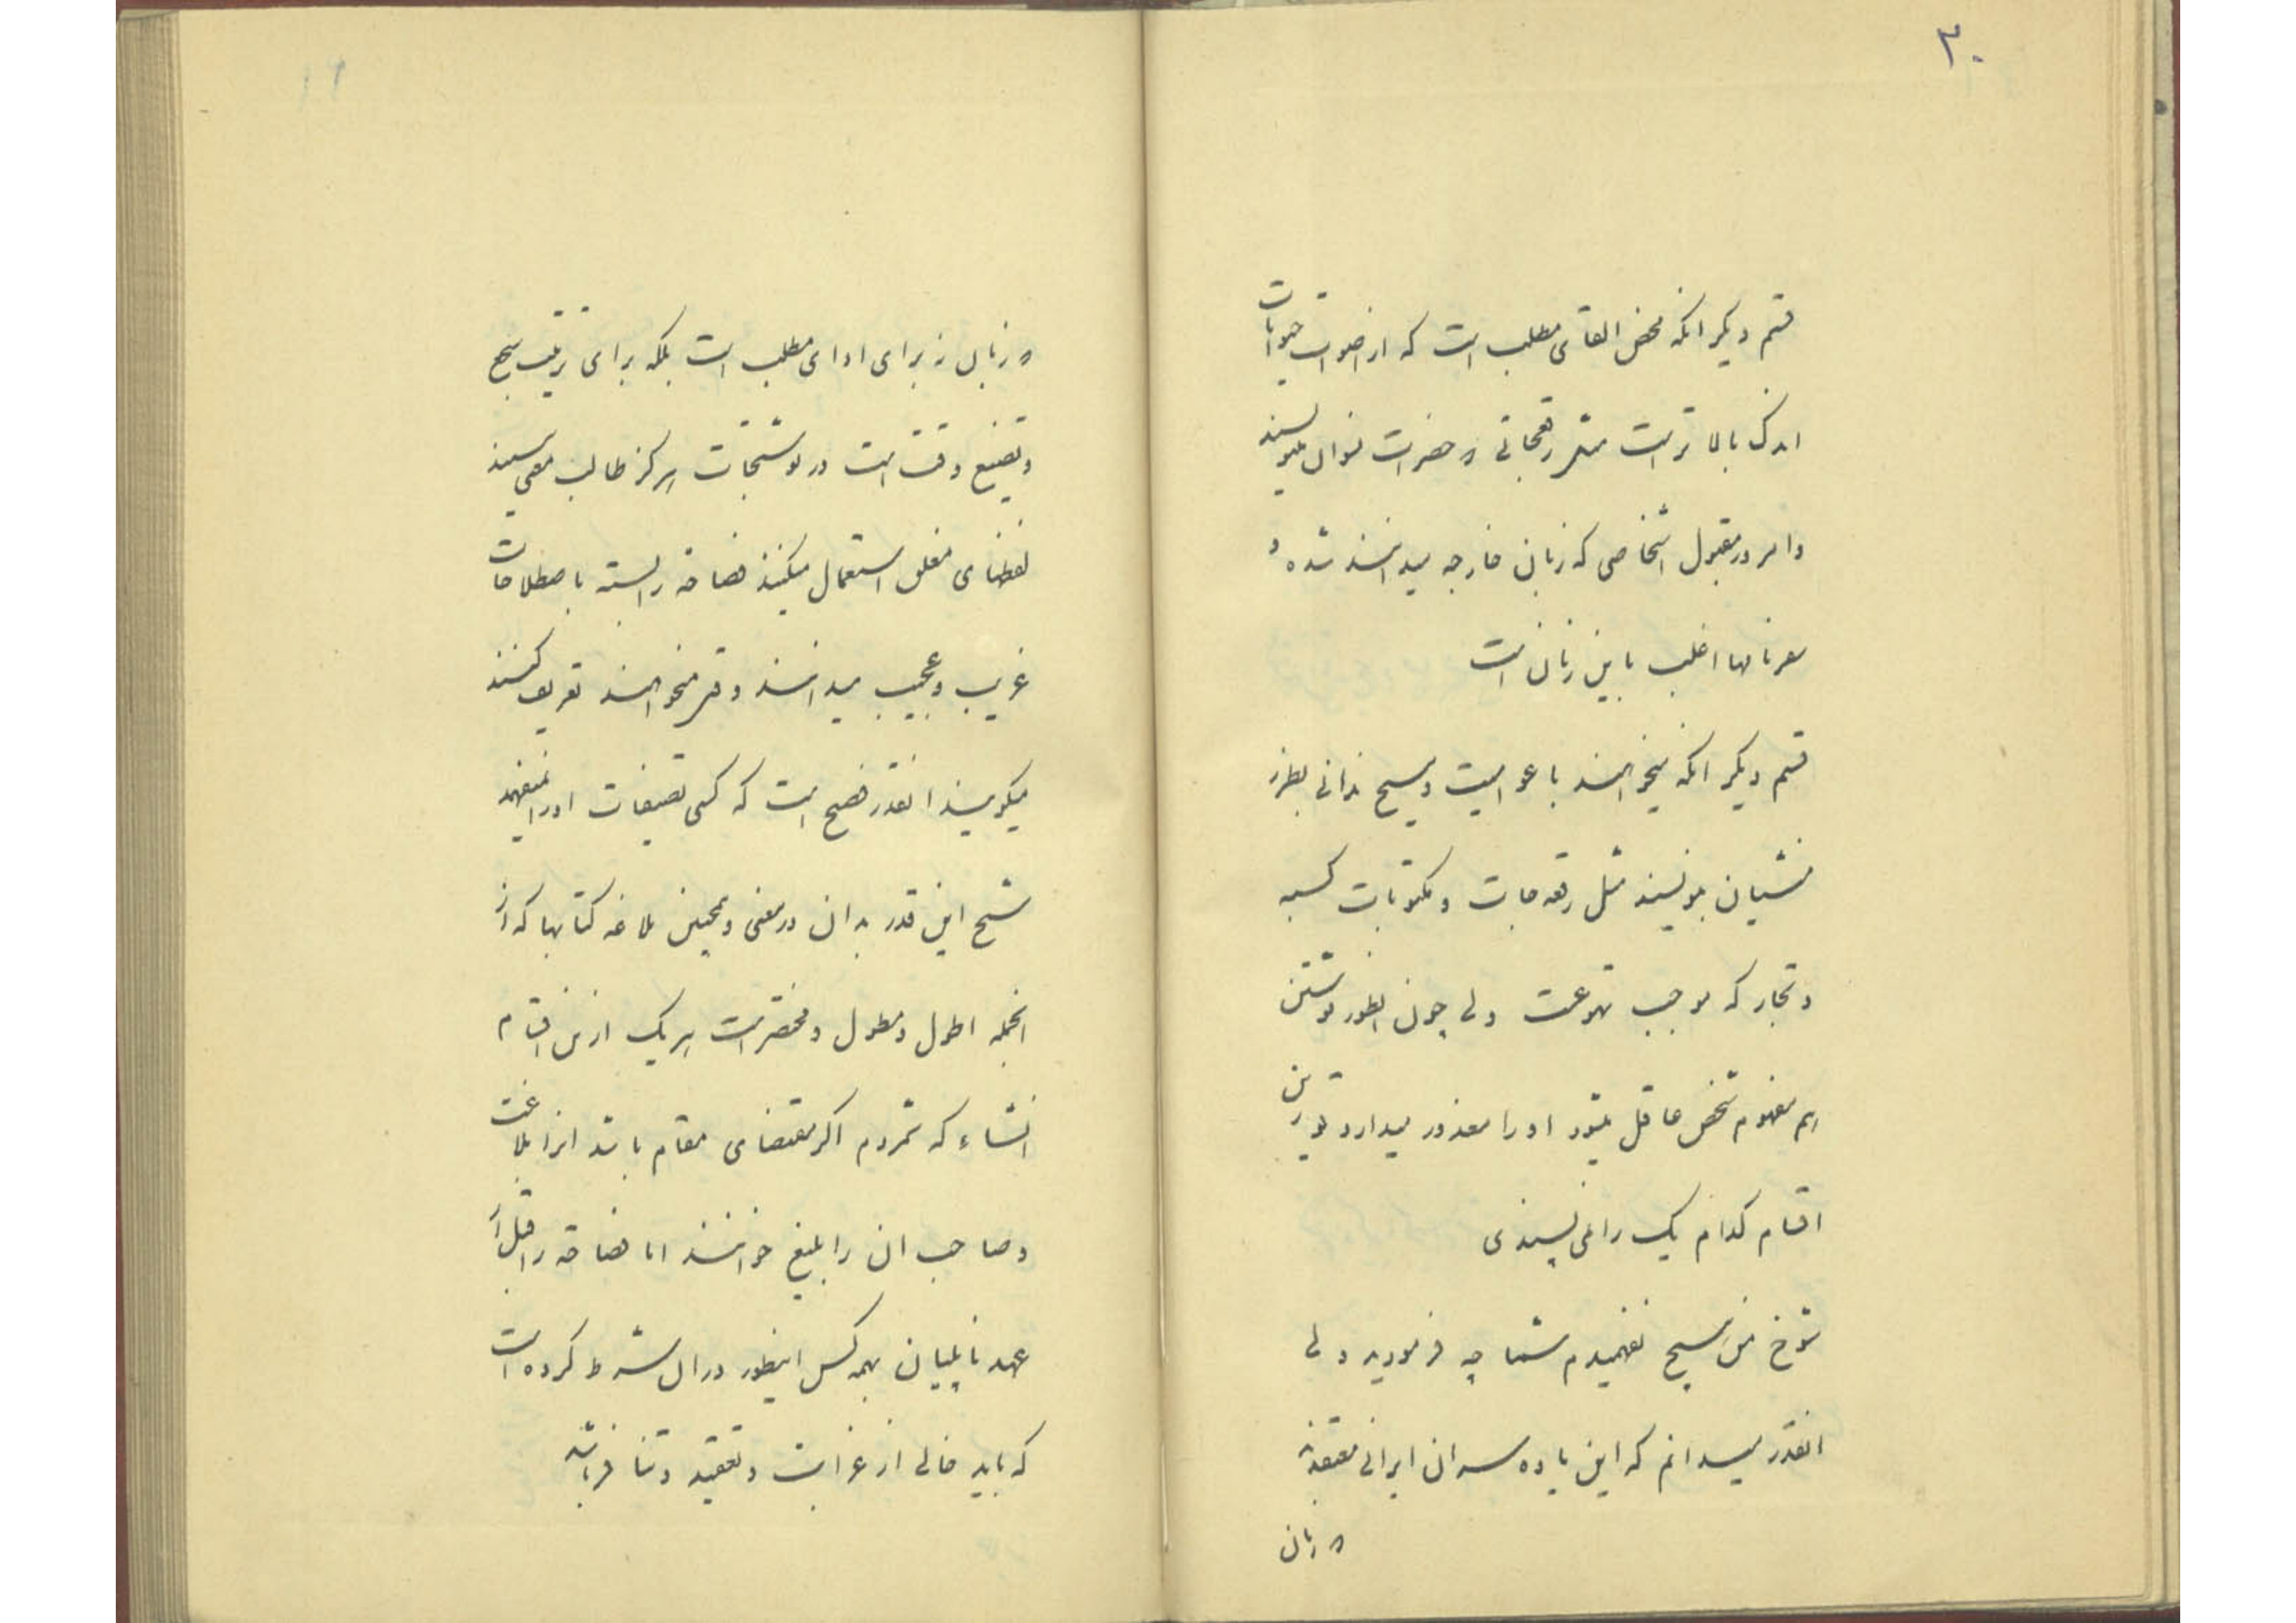 ۲۰
قسم دیگر انکه محض القای مطلب است که از اصوات حیوانات
اندک بالا تر است مثل رقعجاتی ه حضرات نسوان بنویسند
و امروز مقبول اشخاصی که زبان خارجه میدانند شده و
اغلب باین زبان است
قسم دیگر انکه میخواهند با عوامیت و هیچ ندانی بطرز
منشیان بنویسند مثل رقعه جات و مکتوبات کسبه
و تجار که موجب تهوعست ولی چون اینطور نوشتن
هم مفهوم شخص عاقل میشود او را معذور میدارد تو ازین
اقسام کدام یک را می پسندی
شوخ من هیچ نفهمیدم شما چه فرمودید ولی
انقدر میدانم که این یاده سران ایرانی معتقدند
ه زبان
۲۱
ه زبان نه برای ادای مطلب است بلکه برای ترتیب سجع
و تضیع وقت است در نوشتجات هرگز طالب معنی نیستند
لفظهای مغلق استعمال میکنند فصاحة را بسته باصطلاحات
غریب و عجیب میدانند وقتی میخواهند تعریف کنند
میگویند انقدر فصیح است که کسی تصنیفات او را نمیفهمد
شیخ این قدر بدان در معنی و همچنین بلاغه کتابها که از
انجمله اطول و مطول و مختصر است هر یک ازین اقسام
انشاء که شمردم اگر مقتضای مقام باشد انرا بلاغت
و صاحب ان را بلیغ خوانند اما فصاحة را قبل از
عهد ناپلیان همه کس اینطور در ان شرط کرده است
که باید خالی از غرابت و تعقید و تنافر باشد